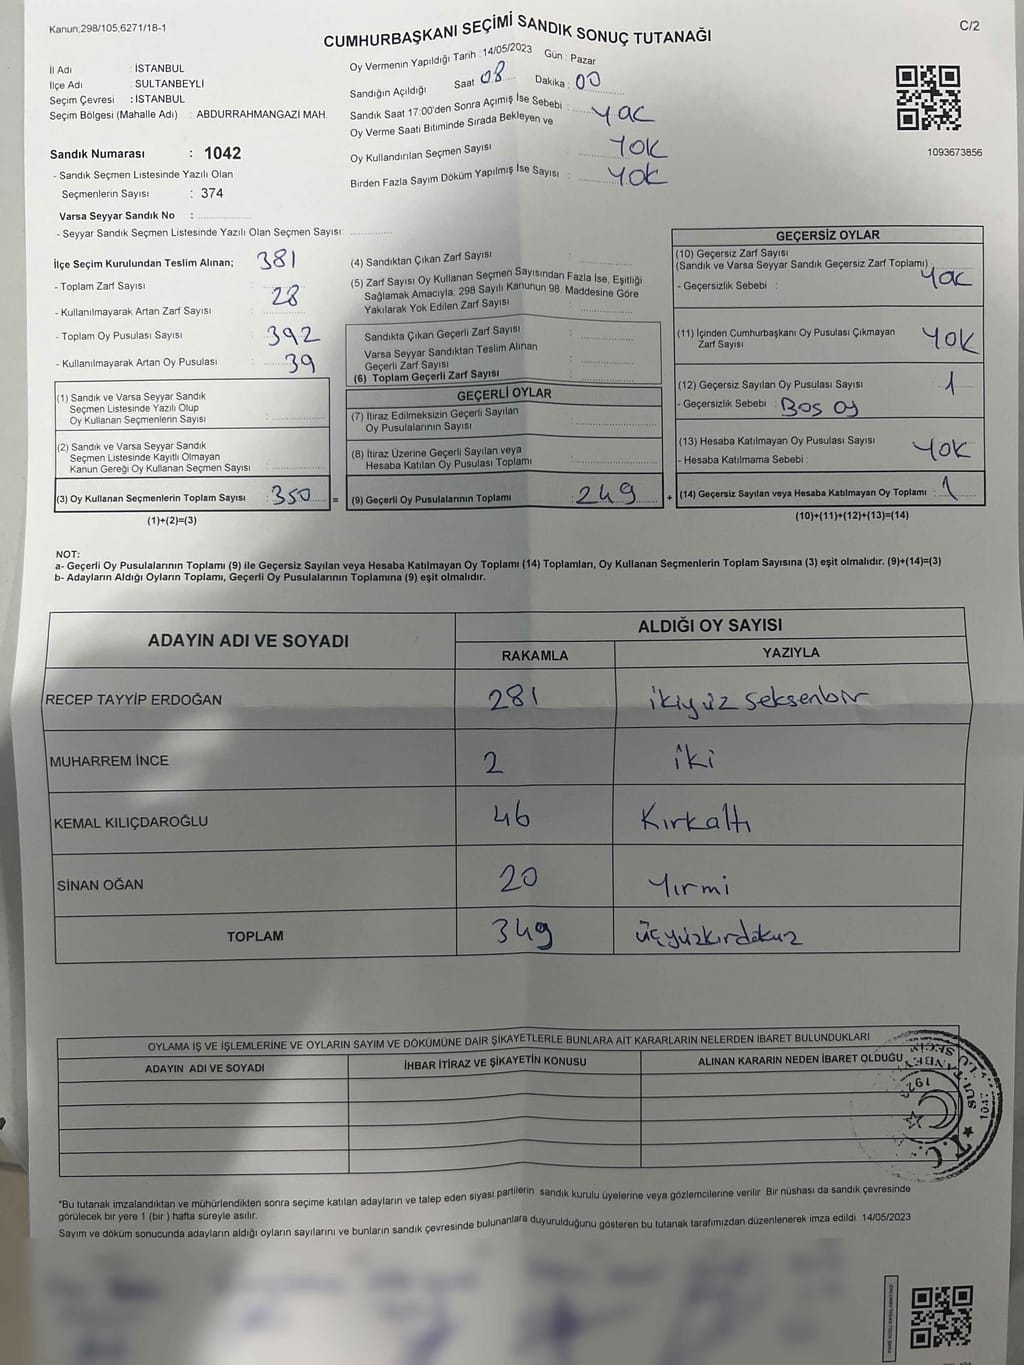 Kanun;298/105,6271/18-1
CUMHURBAŞKANI SEÇİMİ SANDIK SONUÇ TUTANAĞI
C/2
İl Adı : İSTANBUL
İlçe Adı : SULTANBEYLİ
Seçim Çevresi : İSTANBUL
Seçim Bölgesi (Mahalle Adı) : ABDURRAHMANGAZİ MAH.
Sandık Numarası : 1042
- Sandık Seçmen Listesinde Yazılı Olan
Seçmenlerin Sayısı : 374
Varsa Seyyar Sandık No :
- Seyyar Sandık Seçmen Listesinde Yazılı Olan Seçmen Sayısı:
Oy Vermenin Yapıldığı Tarih : 14/05/2023 Gün : Pazar
Sandığın Açıldığı Saat 08 Dakika : 00
Sandık Saat 17:00'den Sonra Açımış İse Sebebi : Yok
Oy Verme Saati Bitiminde Sırada Bekleyen ve
Oy Kullandırılan Seçmen Sayısı : YOK
Birden Fazla Sayım Döküm Yapılmış İse Sayısı : YOK
1093673856
İlçe Seçim Kurulundan Teslim Alınan;
- Toplam Zarf Sayısı : 381
- Kullanılmayarak Artan Zarf Sayısı : 28
- Toplam Oy Pusulası Sayısı : 392
- Kullanılmayarak Artan Oy Pusulası : 39
(1) Sandık ve Varsa Seyyar Sandık
Seçmen Listesinde Yazılı Olup
Oy Kullanan Seçmenlerin Sayısı :
(2) Sandık ve Varsa Seyyar Sandık
Seçmen Listesinde Kayıtlı Olmayan
Kanun Gereği Oy Kullanan Seçmen Sayısı :
(3) Oy Kullanan Seçmenlerin Toplam Sayısı : 350 =
(1)+(2)=(3)
(4) Sandıktan Çıkan Zarf Sayısı :
(5) Zarf Sayısı Oy Kullanan Seçmen Sayısından Fazla İse, Eşitliği
Sağlamak Amacıyla, 298 Sayılı Kanunun 98. Maddesine Göre
Yakılarak Yok Edilen Zarf Sayısı :
Sandıkta Çıkan Geçerli Zarf Sayısı :
Varsa Seyyar Sandıktan Teslim Alınan
Geçerli Zarf Sayısı :
(6) Toplam Geçerli Zarf Sayısı :
GEÇERLİ OYLAR
(7) İtiraz Edilmeksizin Geçerli Sayılan
Oy Pusulalarının Sayısı :
(8) İtiraz Üzerine Geçerli Sayılan veya
Hesaba Katılan Oy Pusulası Toplamı :
(9) Geçerli Oy Pusulalarının Toplamı : 249 +
GEÇERSİZ OYLAR
(10) Geçersiz Zarf Sayısı
(Sandık ve Varsa Seyyar Sandık Geçersiz Zarf Toplamı) : Yok
- Geçersizlik Sebebi :
(11) İçinden Cumhurbaşkanı Oy Pusulası Çıkmayan
Zarf Sayısı : YOK
(12) Geçersiz Sayılan Oy Pusulası Sayısı : 1
- Geçersizlik Sebebi : Boş oy
(13) Hesaba Katılmayan Oy Pusulası Sayısı : YOK
- Hesaba Katılmama Sebebi :
(14) Geçersiz Sayılan veya Hesaba Katılmayan Oy Toplamı : 1
(10)+(11)+(12)+(13)=(14)
NOT:
a- Geçerli Oy Pusulalarının Toplamı (9) ile Geçersiz Sayılan veya Hesaba Katılmayan Oy Toplamı (14) Toplamları, Oy Kullanan Seçmenlerin Toplam Sayısına (3) eşit olmalıdır. (9)+(14)=(3)
b- Adayların Aldığı Oyların Toplamı, Geçerli Oy Pusulalarının Toplamına (9) eşit olmalıdır.
ADAYIN ADI VE SOYADI
ALDIĞI OY SAYISI
RAKAMLA YAZIYLA
RECEP TAYYİP ERDOĞAN 281 ikiyüz seksenbir
MUHARREM İNCE 2 iki
KEMAL KILIÇDAROĞLU 46 Kırkaltı
SİNAN OĞAN 20 Yırmi
TOPLAM 349 üçyüzkırdokuz
OYLAMA İŞ VE İŞLEMLERİNE VE OYLARIN SAYIM VE DÖKÜMÜNE DAİR ŞİKAYETLERLE BUNLARA AİT KARARLARIN NELERDEN İBARET BULUNDUKLARI
ADAYIN ADI VE SOYADI İHBAR İTİRAZ VE ŞİKAYETİN KONUSU ALINAN KARARIN NEDEN İBARET OLDUĞU
T.C.
*Bu tutanak imzalandıktan ve mühürlendikten sonra seçime katılan adayların ve talep eden siyasi partilerin sandık kurulu üyelerine veya gözlemcilerine verilir. Bir nüshası da sandık çevresinde
görülecek bir yere 1 (bir) hafta süreyle asılır.
Sayım ve döküm sonucunda adayların aldığı oyların sayılarını ve bunların sandık çevresinde bulunanlara duyurulduğunu gösteren bu tutanak tarafımızdan düzenlenerek imza edildi. 14/05/2023